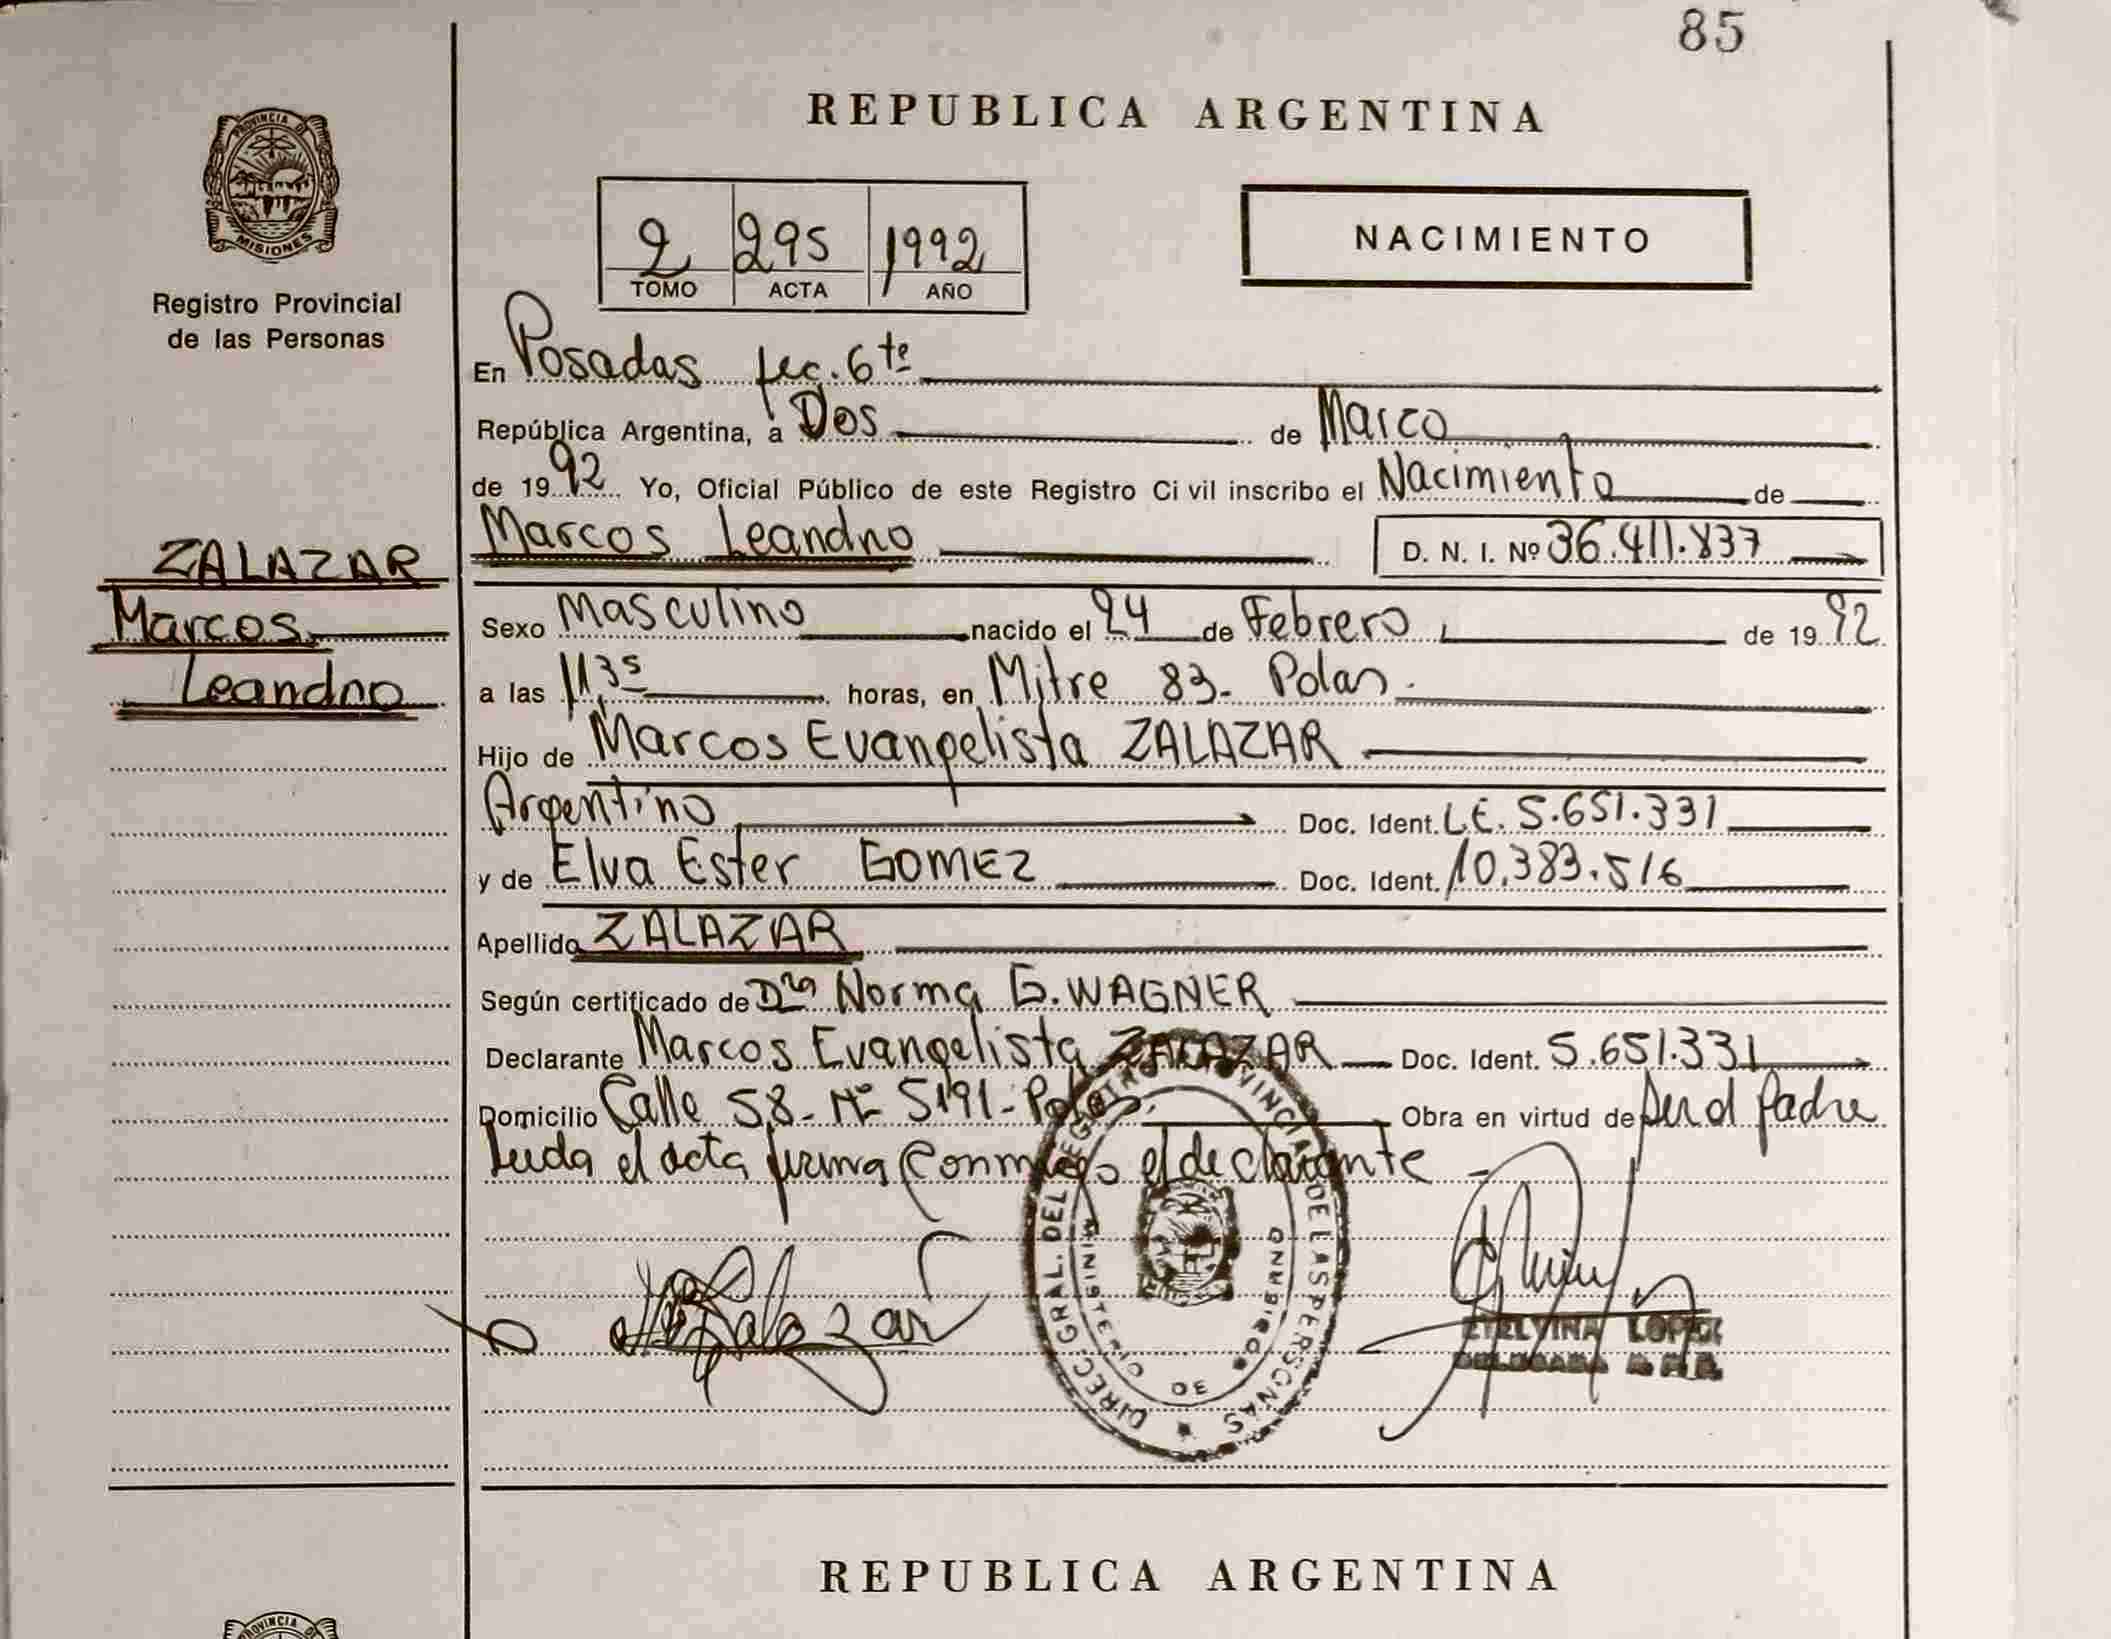 85
REPUBLICA ARGENTINA
PROVINCIA DE
MISIONES
Registro Provincial
de las Personas
2 295 1992
TOMO ACTA AÑO
NACIMIENTO
En Posadas sec. 6ta
República Argentina, a Dos de Marco
de 1992 Yo, Oficial Público de este Registro Civil inscribo el Nacimiento de
Marcos Leandro D. N. I. Nº 36.411.837
ZALAZAR
Marcos
Leandro
Sexo Masculino nacido el 24 de Febrero de 1992
a las 11,35 horas, en Mitre 83- Pdas.
Hijo de Marcos Evangelista ZALAZAR
Argentino Doc. Ident. L.E. 5.651.331
y de Elva Ester GOMEZ Doc. Ident. 10.383.516
Apellido ZALAZAR
Según certificado de Dra Norma G. WAGNER
Declarante Marcos Evangelista ZALAZAR Doc. Ident. 5.651.331
Domicilio Calle 58- Nº 5191- Pdas. Obra en virtud de ser el padre
Leida el acta firma Conmigo el declarante -
DIREC. GRAL. DEL REGISTRO PROVINCIAL DE LAS PERSONAS
MINISTERIO DE GOBIERNO
Zalazar
ETELVINA LOPEZ
DELEGADA
REPUBLICA ARGENTINA
PROVINCIA DE